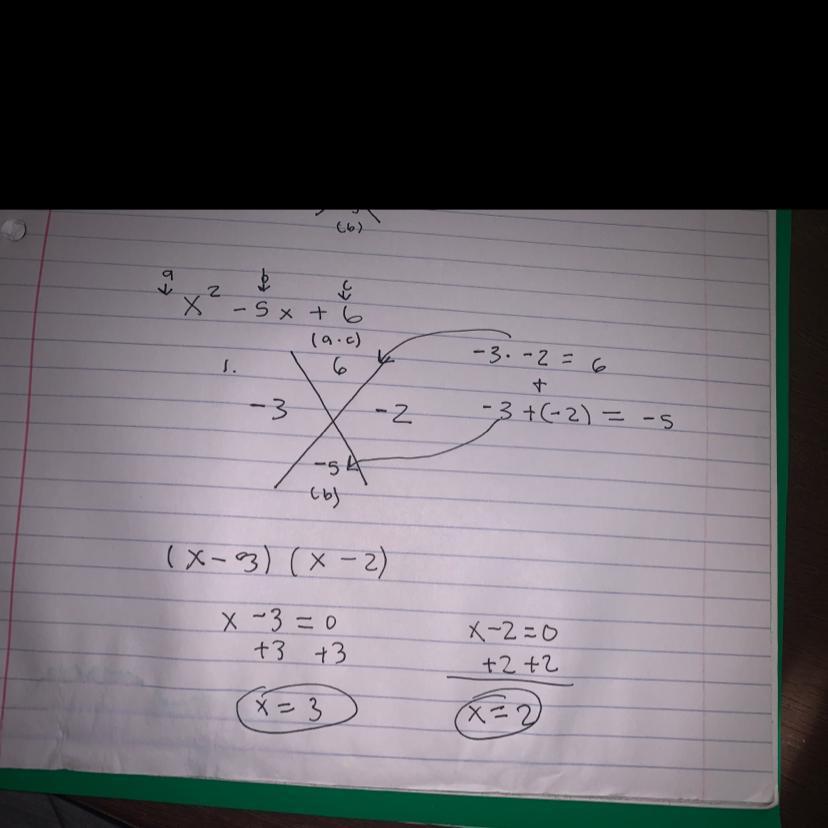 (b)
a b c
↓ ↓ ↓
x² - 5x + 6
(a·c)
1. 6 -3 · -2 = 6
+
-3 -2 -3 + (-2) = -5
-5
(b)
(x - 3) (x - 2)
x - 3 = 0 x - 2 = 0
+3 +3 +2 +2
x = 3 x = 2